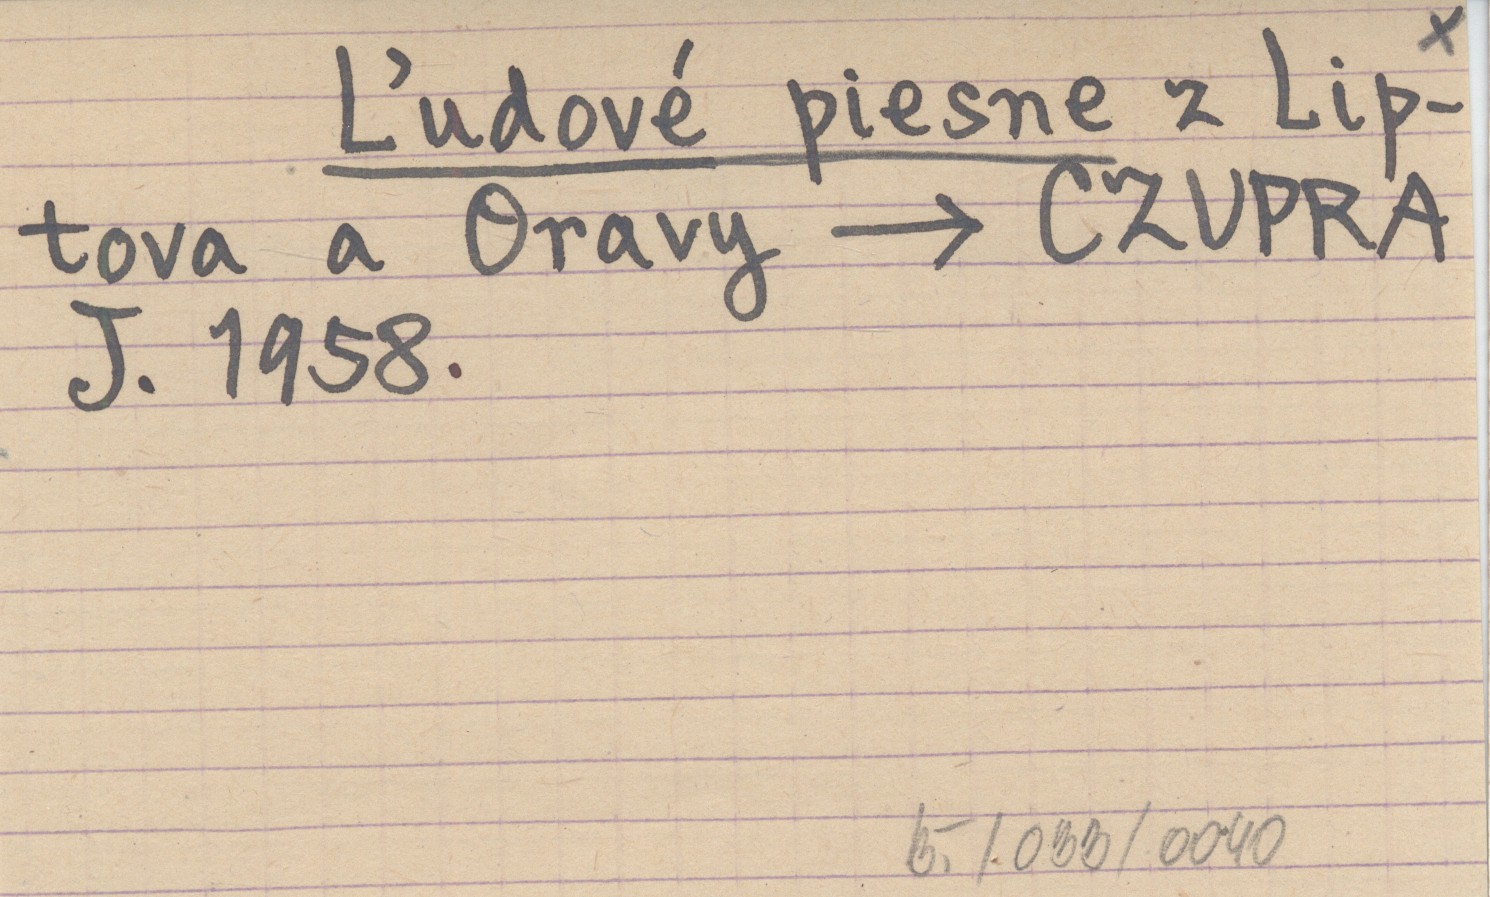 x
Ľudové piesne z Lip-
tova a Oravy → CZUPRA
J. 1958.
5./033/0040